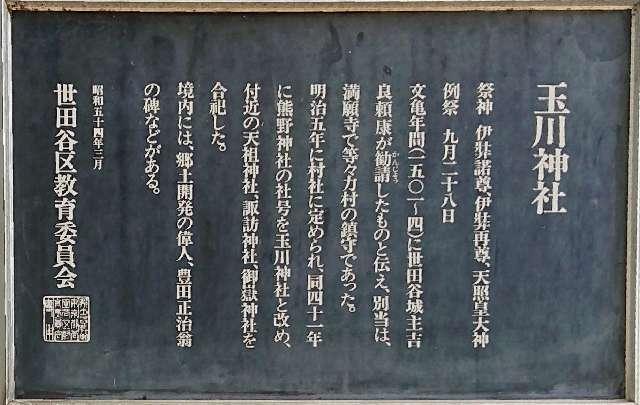 玉川神社
祭神 伊弉諾尊、伊弉再尊、天照皇大神
例祭 九月二十八日
文亀年間(一五〇一〜四)に世田谷城主吉
良頼康が勧請したものと伝え、別当は、
かんじょう
満願寺で等々力村の鎮守であった。
明治五年に村社に定められ、同四十一年
に熊野神社の社号を玉川神社と改め、
付近の天祖神社、諏訪神社、御嶽神社を
合祀した。
境内には、郷土開発の偉人、豊田正治翁
の碑などがある。
昭和五十四年三月
世田谷区教育委員会